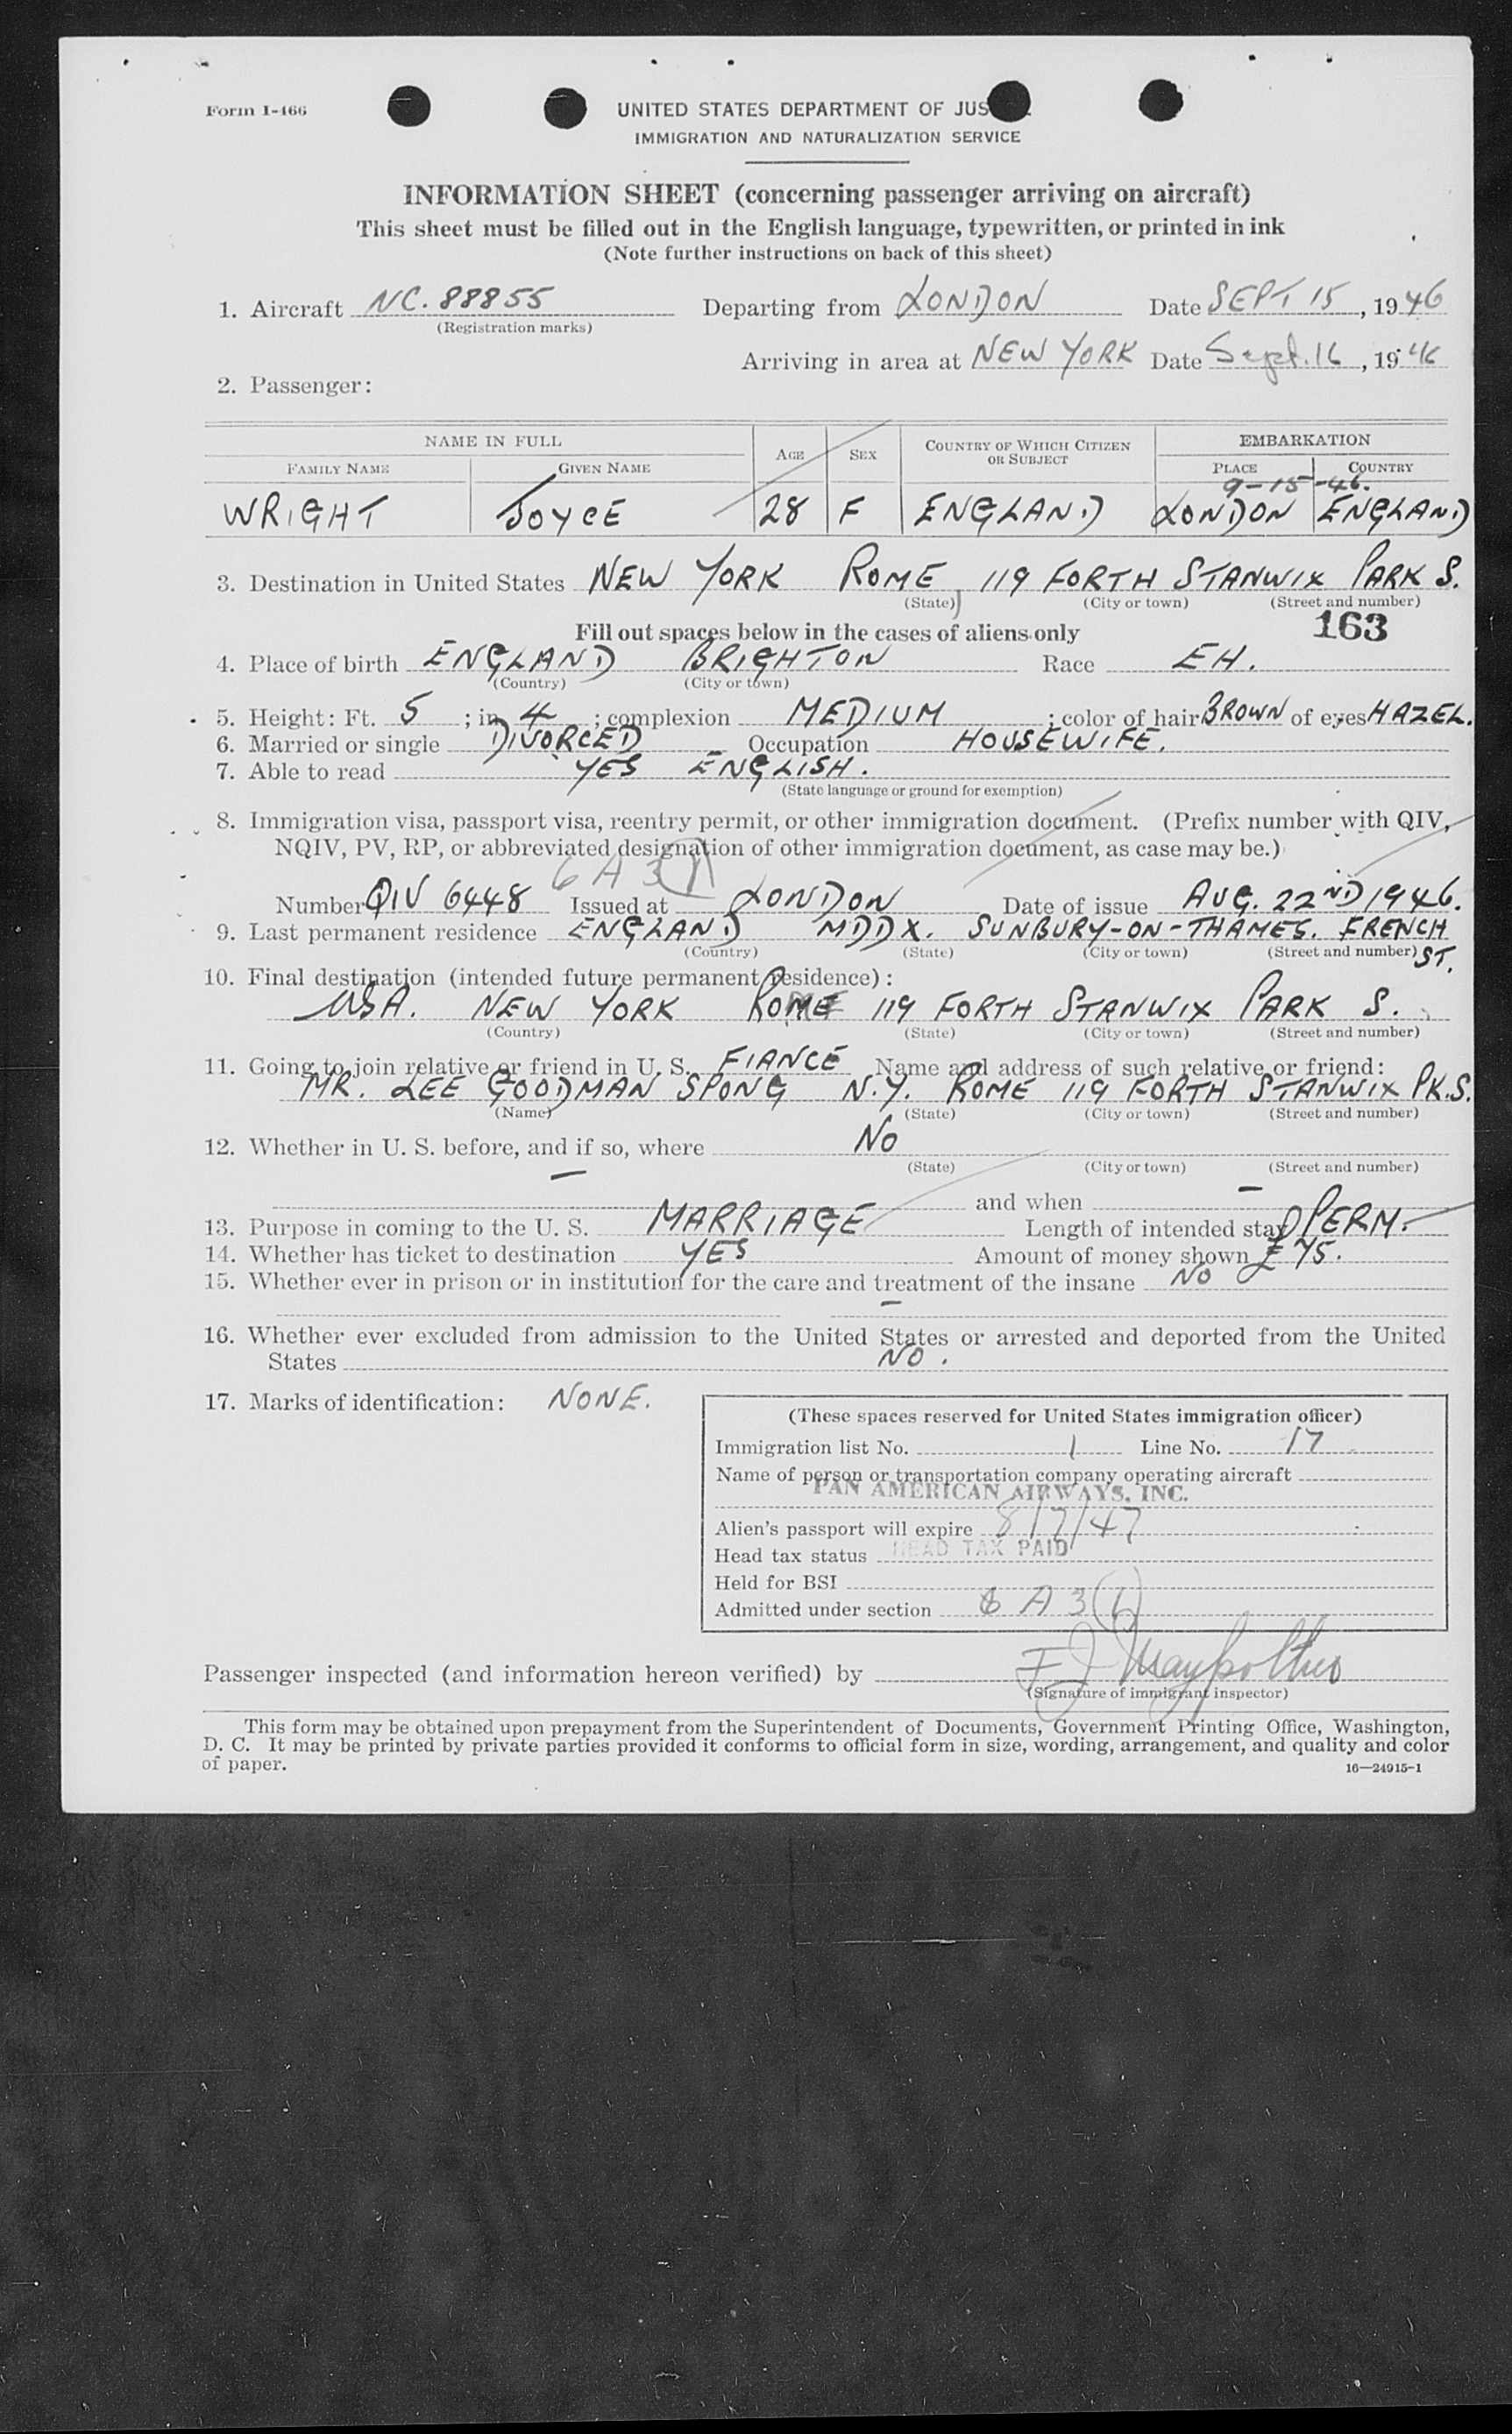 Form I-466
UNITED STATES DEPARTMENT OF JUS
IMMIGRATION AND NATURALIZATION SERVICE
INFORMATION SHEET (concerning passenger arriving on aircraft)
This sheet must be filled out in the English language, typewritten, or printed in ink
(Note further instructions on back of this sheet)
1. Aircraft NC. 88855 Departing from LONDON Date SEPT 15, 1946
(Registration marks)
Arriving in area at NEW YORK Date Sept. 16, 1946
2. Passenger:
NAME IN FULL AGE SEX COUNTRY OF WHICH CITIZEN OR SUBJECT EMBARKATION
FAMILY NAME GIVEN NAME PLACE COUNTRY
9-15-46.
WRIGHT JOYCE 28 F ENGLAND LONDON ENGLAND
3. Destination in United States NEW YORK ROME, 119 FORTH STANWIX PARK S.
(State) (City or town) (Street and number)
Fill out spaces below in the cases of aliens only 163
4. Place of birth ENGLAND BRIGHTON Race EH.
(Country) (City or town)
5. Height: Ft. 5; in 4; complexion MEDIUM; color of hair BROWN of eyes HAZEL.
6. Married or single DIVORCED Occupation HOUSEWIFE.
7. Able to read YES ENGLISH.
(State language or ground for exemption)
8. Immigration visa, passport visa, reentry permit, or other immigration document. (Prefix number with QIV,
NQIV, PV, RP, or abbreviated designation of other immigration document, as case may be.)
6 A 3 (1)
Number QIV 6448 Issued at LONDON Date of issue AUG. 22ND 1946.
9. Last permanent residence ENGLAND MDDX. SUNBURY-ON-THAMES. FRENCH ST.
(Country) (State) (City or town) (Street and number)
10. Final destination (intended future permanent residence):
USA. NEW YORK ROME 119 FORTH STANWIX PARK S.
(Country) (State) (City or town) (Street and number)
11. Going to join relative or friend in U. S. FIANCÉ Name and address of such relative or friend:
MR. LEE GOODMAN SPONG N.Y. ROME 119 FORTH STANWIX PK.S.
(Name) (State) (City or town) (Street and number)
12. Whether in U. S. before, and if so, where NO
(State) (City or town) (Street and number)
— and when —
13. Purpose in coming to the U. S. MARRIAGE Length of intended stay PERM.
14. Whether has ticket to destination YES Amount of money shown £75.
15. Whether ever in prison or in institution for the care and treatment of the insane NO
—
16. Whether ever excluded from admission to the United States or arrested and deported from the United
States NO.
17. Marks of identification: NONE.
(These spaces reserved for United States immigration officer)
Immigration list No. 1 Line No. 17
Name of person or transportation company operating aircraft
PAN AMERICAN AIRWAYS, INC.
Alien's passport will expire 8/7/47
Head tax status HEAD TAX PAID
Held for BSI
Admitted under section 6 A 3 (1)
Passenger inspected (and information hereon verified) by F J
(Signature of immigrant inspector)
This form may be obtained upon prepayment from the Superintendent of Documents, Government Printing Office, Washington,
D. C. It may be printed by private parties provided it conforms to official form in size, wording, arrangement, and quality and color
of paper.
16—24915-1